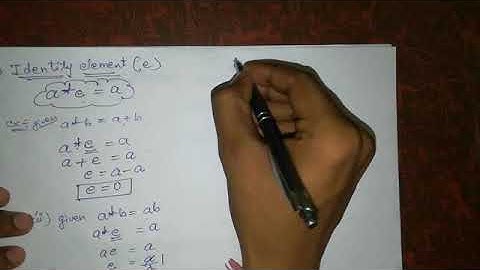 Identity element (e)
a*e = a
Ex:- given a*b = a+b
a*e = a
a+e = a
e = a-a
e=0
ii) given a*b = ab
a*e = a
ae = a
e = a